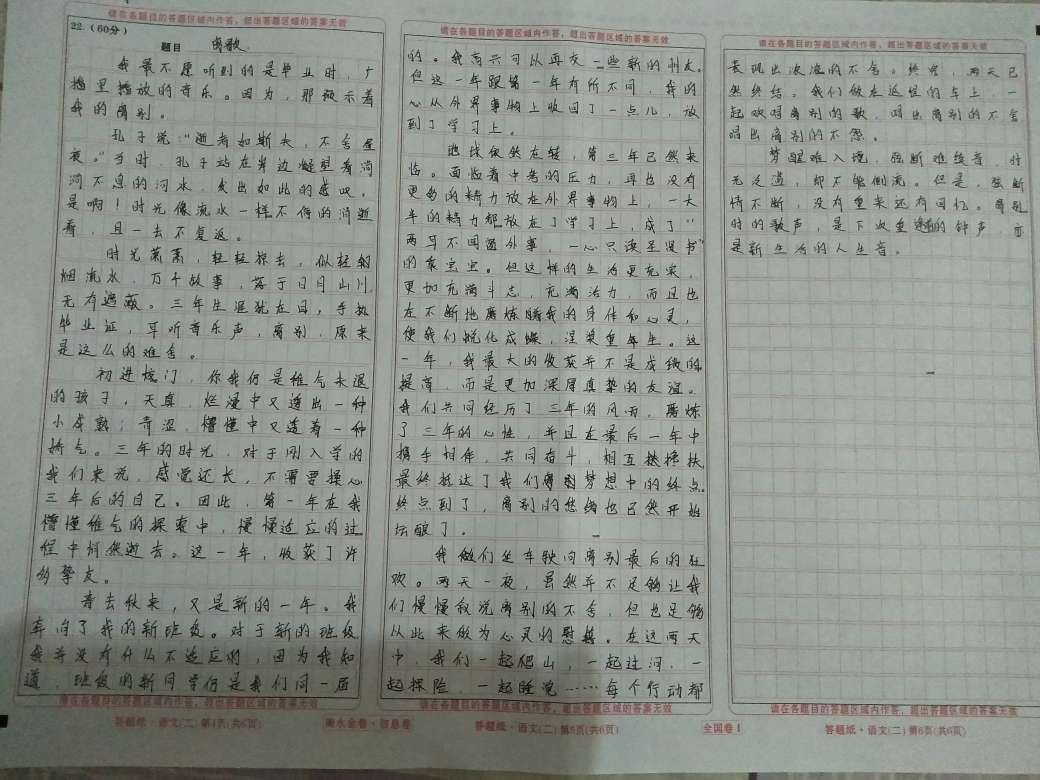 请在各题目的答题区域内作答，超出答题区域的答案无效
22.（60分）
题目 离歌
我最不愿听到的是毕业时，广
播里播放的音乐。因为，那预示着
我的离别。
孔子说：“逝者如斯夫，不舍昼
夜。”当时，孔子站在岸边凝望着滔
滔不息的河水，发出如此的感叹。
是啊！时光像流水一样不停的消逝
着，且一去不复返。
时光荏苒，轻轻拂去，似轻韵
烟流水，万千故事，落于日月山川，
无有遮蔽。三年生涯犹在目，手执
毕业证，耳听音乐声，离别，原来
是这么的难舍。
初进校门，你我仍是稚气未退
的孩子，天真、烂漫中又透出一种
小成熟；青涩、懵懂中又透着一种
娇气。三年的时光，对于刚入学的
我们来说，感觉还长，不需要操心
三年后的自己。因此，第一年在我
懵懂稚气的探索中，慢慢适应的过
程中悄然逝去。这一年，收获了许
多挚友。
春去秋来，又是新的一年。我
奔向了我的新班级。对于新的班级
我并没有什么不适应的，因为我知
道，班级的新同学仍是我们同一届
请在各题目的答题区域内作答，超出答题区域的答案无效
答题纸·语文(二) 第4页(共6页)
衡水金卷·信息卷
请在各题目的答题区域内作答，超出答题区域的答案无效
的。我高兴可以再交一些新的朋友。
但这一年跟第一年有所不同，我的
心从外界事物上收回了一点儿，放
到了学习上。
地球依然在转，第三年已然来
临。面临着中考的压力，再也没有
更多的精力放在外界事物上，一大
半的精力都放在了学习上，成了“
两耳不闻窗外事，一心只读圣贤书”
的乖宝宝。但这样的生活更充实，
更加充满斗志，充满活力，而且也
在不断地磨炼着我的身体和心灵，
使我们蜕化成蝶，涅槃重生。这
一年，我最大的收获并不是成绩的
提高，而是更加深厚真挚的友谊。
我们共同经历了三年的风雨，磨炼
了三年的心性，并且在最后一年中
携手相伴，共同奋斗，相互搀扶
最终抵达了我们梦想中的终点。
终点到了，离别的愁绪也已然开始
坛酿了。
我们坐车驶向离别最后的狂
欢。两天一夜，虽然并不足够让我
们慢慢叙说离别的不舍，但也足够
从此来做为心灵的慰藉。在这两天
中，我们一起爬山，一起过河，一
起探险，一起睡觉……每个行动都
请在各题目的答题区域内作答，超出答题区域的答案无效
答题纸·语文(二) 第5页(共6页)
全国卷Ⅰ
请在各题目的答题区域内作答，超出答题区域的答案无效
表现出浓浓的不舍。终究，两天已
然终结。我们做在返程的车上，一
起欢唱离别的歌，唱出离别的不舍，
唱出离别的不愿。
梦醒难入境，弦断难续音，时
光泛道，却不能倒流。但是，弦断
情不断，没有重来还有回忆。离别
时的歌声，是下次重逢的钟声，亦
是新生活的人生音。
请在各题目的答题区域内作答，超出答题区域的答案无效
答题纸·语文(二) 第6页(共6页)